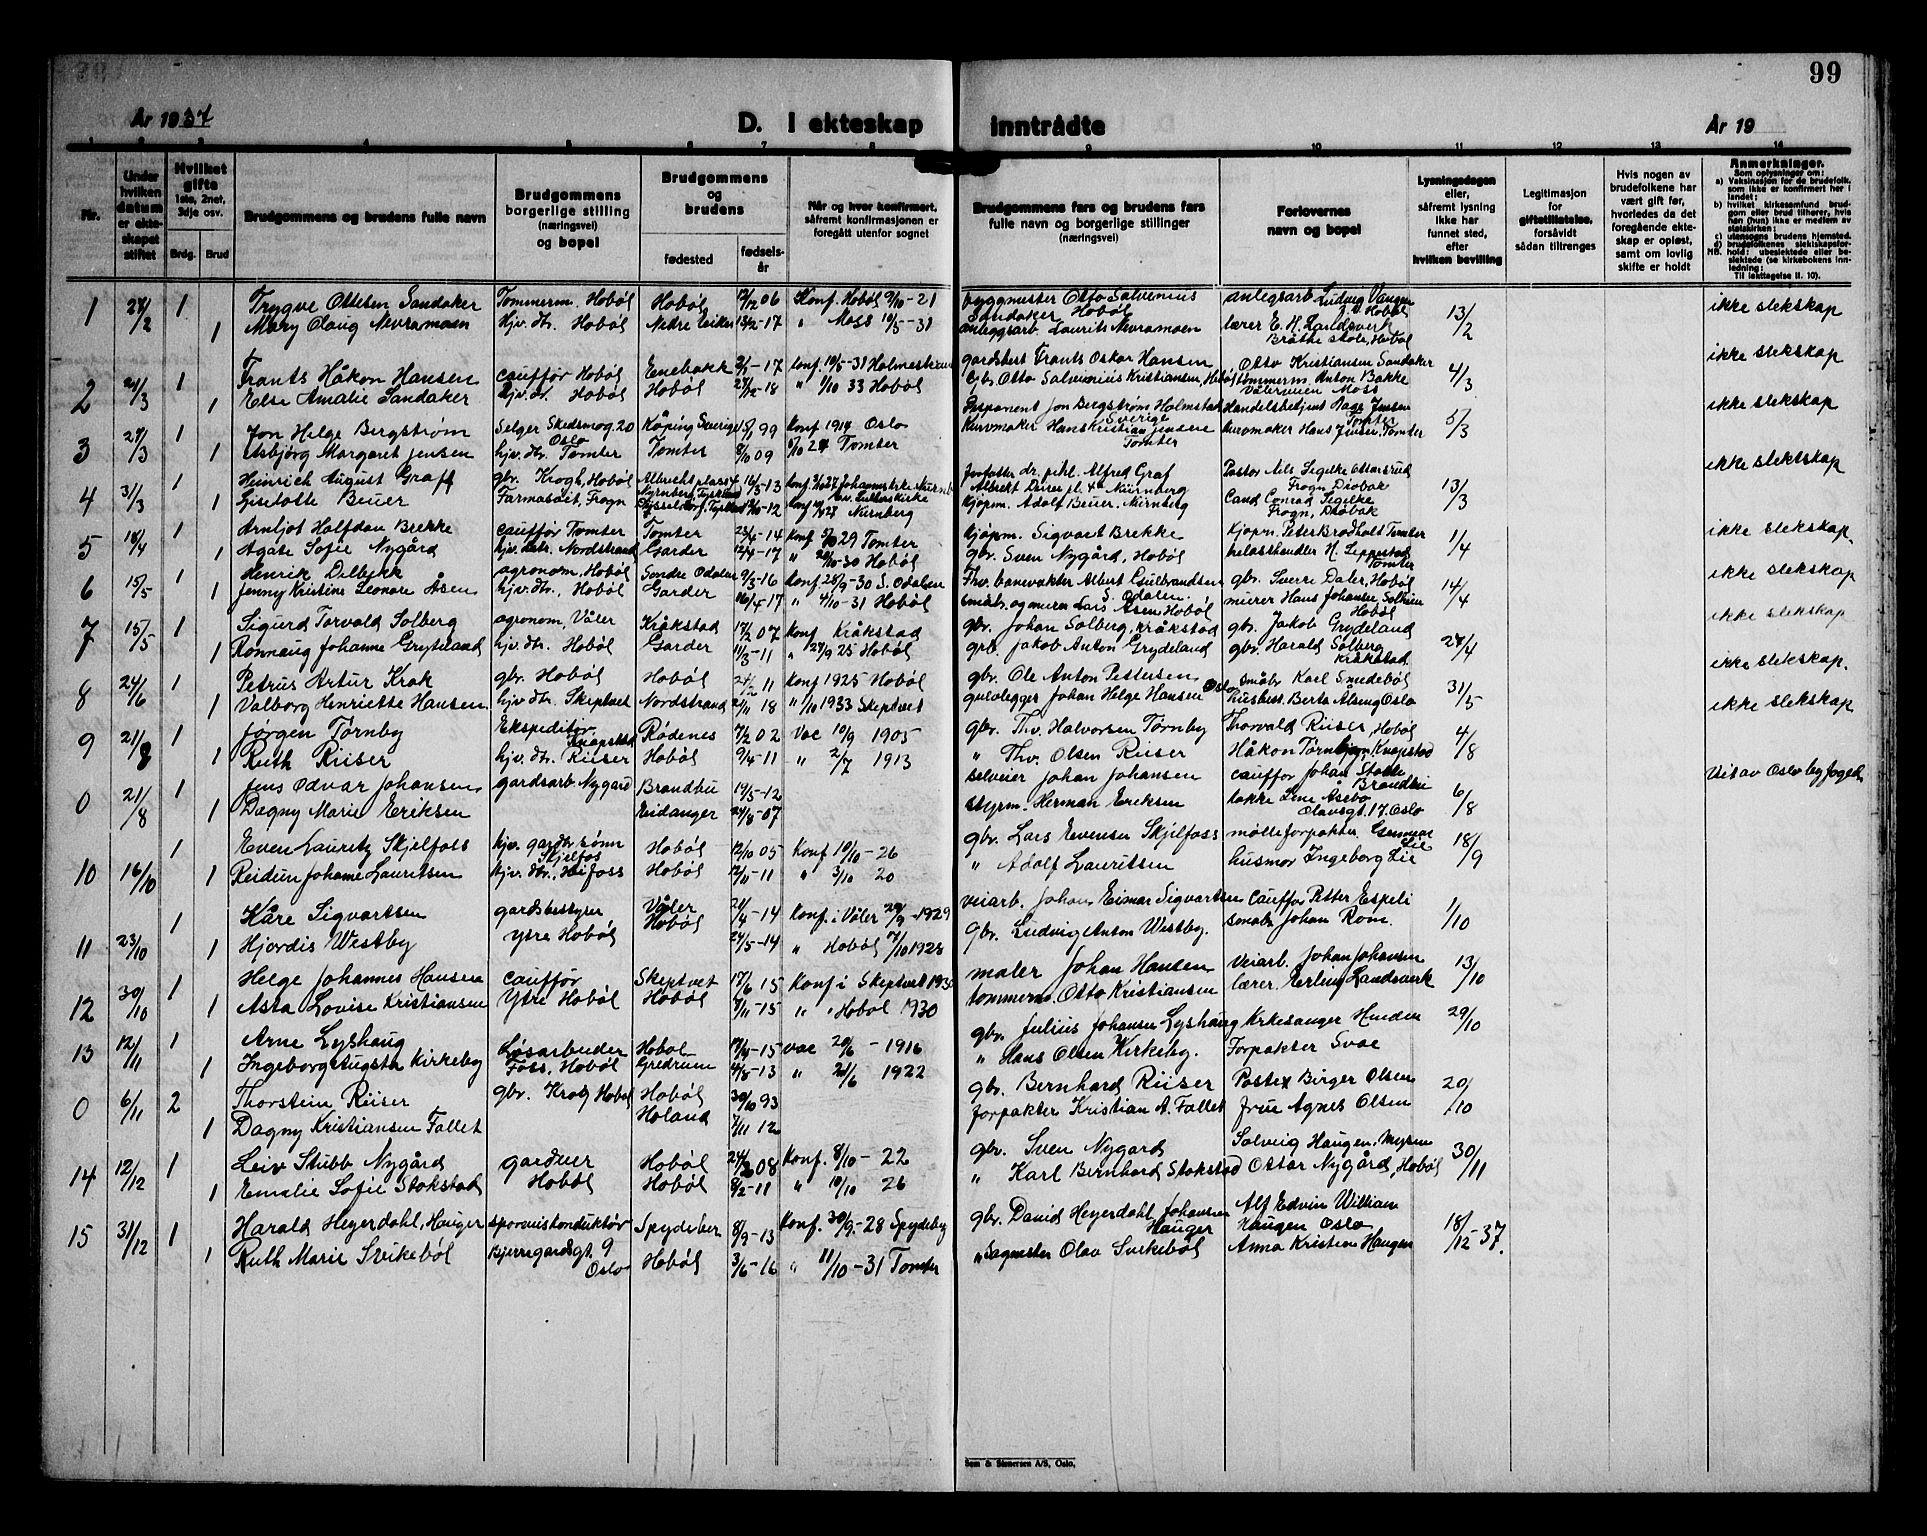 99
År 1937
D. I ekteskap inntrådte
År 19
1 2 3 4 5 6 7 8 9 10 11 12 13 14
Nr.
Under hvilken datum er ekteskapet stiftet
Hvilket gifte 1ste, 2net, 3dje osv.
Brdg. Brud
Brudgommens og brudens fulle navn
Brudgommens borgerlige stilling (næringsvei) og bopel
Brudgommens og brudens
fødested
fødselsår
Når og hvor konfirmert, såfremt konfirmasjonen er foregått utenfor sognet
Brudgommens fars og brudens fars fulle navn og borgerlige stillinger (næringsvei)
Forlovernes navn og bopel
Lysningsdagen eller, såfremt lysning ikke har funnet sted, efter hvilken bevilling
Legitimasjon for giftetillatelse, forsåvidt sådan tiltrenges
Hvis nogen av brudefolkene har vært gift før, hvorledes da det foregående ekteskap er opløst, samt om lovlig skifte er holdt
Anmerkninger.
Som oplysninger om:
a) Vaksinasjon for de brudefolk, som ikke er konfirmert her i landet:
b) hvilket kirkesamfund brudgom eller brud tilhører, hvis han (hun) ikke er medlem av statskirken:
c) utensogns brudens hjemsted.
d) brudefolkenes slektskapsforhold: ubeslektede eller beslektede (se kirkebokens innledning:
Til iakttagelse II. 10).
1 27/2 1 Trygve Ottesen Sandaker Tømmerm. Hobøl Hobøl 12/12 06 Konf. Hobøl 9/10-21 byggmester Otto Salvenius Sandaker Hobøl anlegsarb Ludvig Vangen Hobøl 13/2 ikke slekskap
1 Mary Olaug Nevramoen hjv. dtr. Hobøl Nedre Eiker 13/2-17 " Moss 10/5-31 anleggsarb Laurits Nevramoen lærer E. H. Landsverk Bråthe skole, Hobøl
2 21/3 1 Frants Håkon Hansen cauffør Hobøl Enebakk 2/1-17 konf. 10/5-31 Holmestrand gardsbest Frants Oskar Hansen Otto Kristiansen Sandaker 4/3 ikke slekskap
1 Else Amalie Sandaker hjv. dtr. Hobøl Hobøl 27/12-18 " 1/10 33 Hobøl Gbr. Otto Salvenius Kristiansen, Hobøl tømmerm. Anton Bakke Moss
3 27/3 1 Jon Helge Bergstrøm Selger Skedsmog. 20 Oslo Køping Sverige 15/1 99 Konf 1914 Oslo Disponent Jon Bergstrøm Holmstad Sverige Handelsbetjent Aage Jensen Tomter 5/3 ikke slekskap
1 Esbjørg Margaret Jensen hjv. dtr. Tomter Tomter 8/10 09 5/10 24 Tomter kurvmaker Hans Kristian Jensen Tomter kurvmaker Hans Jensen, Tomter
4 31/3 1 Heinrich August Graff gbr. Krogh, Hobøl Albrechtsplass 4 Nyrnberg, Tyskland 16/3-13 Konf. 3/4 27 Johanneskirke Nurnb. forfatter dr. phil. Alfred Graf Albrekt Dürer pl. 4 Nürnberg Pastor Nils Segelke Ottarsrud Frogn Drøbak 13/3 ikke slektskap
1 Liselotte Beuer Farmasøit, Frogn Dysseldorf, Tyskland 18/10-12 Konf Lutherskirke Nurnberg kjøpm. Adolf Beuer, Nurnberg Cand Conrad Segelke Frogn, Drøbak
5 18/4 1 Arnljot Halfdan Brekke cauffør Tomter Tomter 23/4-14 Konf 5/10 29 Tomter kjøpm. Sigvart Brekke Kjøpm. Peter Brødholt Tomter 1/4 ikke slekskap
1 Agate Sofie Nygård hjv. datr. Nordstrand Garder 12/4-17 " 26/10-30 Hobøl gbr. Sven Nygård, Hobøl H. Leppestad Tomter
6 15/5 1 Henrik Delbekk agronom, Hobøl Søndre Odalen 9/3-16 Konf 28/9-30 S. Odalen Fhv. banevokter Albert Gulbrandsen S. Odalen. gbr. Sverre Daler, Hobøl 14/4 ikke slekskap
1 Jenny Kristine Leonore Åsen hjv. dtr., Hobøl Garder 16/4-17 " 4/10-31 Hobøl småbr. og murer Lars Åsen Hobøl murer Hans Johansen Hobøl
7 15/5 1 Sigurd Torvald Solberg agronom, Våler Kråkstad 17/2 07 Konf Kråkstad gbr. Johan Solberg, Kråkstad gbr. Jakob Grydeland 24/4 ikke slekskap
1 Rønnaug Johanne Grydeland hjv. dtr. Hobøl Garder 11/3-11 " 27/9 25 Hobøl gbr. Jakob Anton Grydeland gbr. Harald Solberg Kråkstad
8 24/6 1 Petrus Artur Krok gbr. Hobøl Hobøl 24/2 11 Konf 1925 Hobøl gbr. Ole Anton Pettersen småbr Karl Smedebøl 31/5 ikke slekskap.
1 Valborg Henriette Hansen hjv dtr. Skeptvet Nordstrand 2/11 18 " 1/10 1933 Skeptvet gulvlegger Johan Helge Hansen Oslo husbest. Berta Alseng Oslo
9 21/8 1 Jørgen Tørnby Ekspeditør Knapstad Rødenes 7/2 02 Vac 10/9 1905 gbr. Thv. Halvorsen Tørnby Thorvald Riiser, Hobøl 4/8 ikke slekskap
1 Ruth Riiser hjv. dtr. Riiser Hobøl 9/4-11 " 2/7 1913 " Thv. Olsen Riiser Håkon Tørnby, Knapstad
0 21/8 1 Jens Odvar Johansen gardsarb Nygård Brandbu 19/5-12 selveier Johan Johansen cauffør Johan Brandbu 6/8 Vit av Oslo byfoged
1 Dagny Marie Eriksen Eidanger 24/8-07 styrm. Herman Eriksen kokke Line Aasebø Olavsgt. 17. Oslo
10 16/10 1 Even Lauritz Skjelfoss hjv. gardbr. sønn Skjelfos Hobøl 12/10 05 Konf 10/10-26 gbr. Lars Evensen Skjelfoss mølleforpakter Gunnar Lie 18/9
1 Reidun Johanne Lauritsen hjv. dtr., Høifoss Hobøl 12/11-11 " 3/10 20 " Adolf Lauritsen husmor Ingeborg Lie
11 23/10 1 Kåre Sigvartsen gardsbestyrer Våler 24/4-14 Konf. i Våler 29/9-1929 veiarb. Johan Eimar Sigvartsen Cauffør Petter Espeli 1/10
1 Hjørdis Westby Ytre Hobøl Hobøl 24/5-14 " Hobøl 7/10 1928 gbr. Ludvig Anton Westby. småbr Johan Rom.
12 30/10 1 Helge Johannes Hansen cauffør Skeptvet 17/6 15 Konf i Skeptvet 1930 maler Johan Hansen Veiarb. Johan Johansen 13/10
1 Asta Lovise Kristiansen Ytre Hobøl Hobøl 7/11-15 " " Hobøl 1930 tømmerm. Otto Kristiansen lærer. Erling Landsverk
13 12/11 1 Arne Lyshaug Løsarbeider Hobøl 17/4-15 vac 20/6-1916 gbr. Julius Johansen Lyshaug Kirkesanger 29/10
1 Ingeborg Augsta Kirkeby Foss, Hobøl Gredrum 4/8-13 " 21/6 1922 " Hans Olsen Kirkeby. Forpakter Svae
0 6/11 2 Thorstein Riiser gbr. Krog Hobøl Hobøl 30/10 93 gbr. Bernhard Riiser Postex Birger Olsen 20/10
1 Dagny Kristiansen Fallet Høland 7/11 12 forpakter Kristian A. Fallet frue Agnes Olsen
14 12/12 1 Leiv Stubb Nygård gardeier Hobøl 24/2 08 Konf. 8/10-22 gbr. Sven Nygård Solveig Haugen, Mysen 30/11
1 Emalie Sofie Stokstad Hobøl Hobøl 8/2-11 " 10/10 26 " Karl Bernhard Stokstad Ottar Nygård, Hobøl
15 31/12 1 Harald Heyerdahl, Hauger sporveiskonduktør Spydeber 8/9-13 Konf. 30/9-28 Spydeberg gbr. David Heyerdahl Johansen Hauger Alf Edvin William Haugen Oslo 18/12-37.
1 Ruth Marie Svikebøl Bjerregårdsgt. 9 Oslo Hobøl 3/6-16 " 11/10-31 Tomter " Sagmester Olav Svikebøl Anna Kristine Haugen
Sem & Stenersen A/S, Oslo.